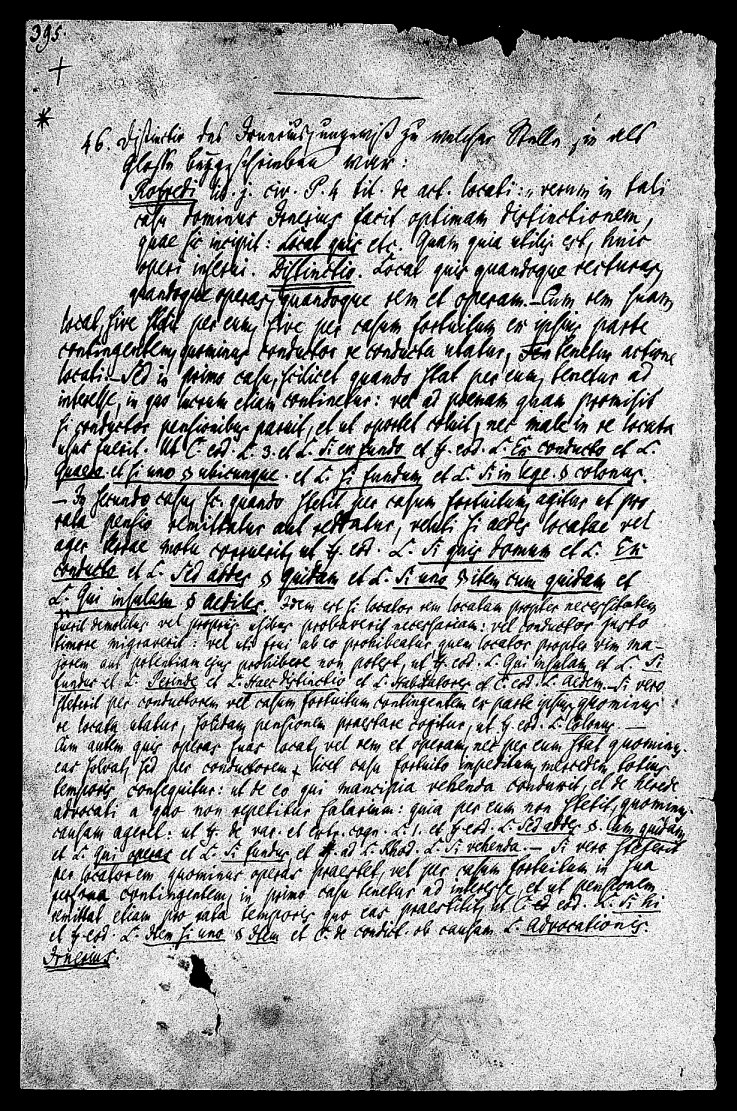 395.
46. Distinctio des Irnerius, ungewiß zu welcher Stelle sie als
Glosse beygeschrieben war:
Rogerii lib. j. civ. P. 4 tit. de act. locati: „verum in tali
casu dominus Irnerius facit optimam distinctionem,
quae sic incipit: Locat quis etc. Quam quia utilis est, huic
operi inserui. Distinctio. Locat quis quandoque rectures,
quandoque operas, quandoque rem et operam. – Cum rem suam
locat, sive stetit per eum, sive per casum fortuitum ex ipsius parte
contingentem, quominus conductor re conducta utatur, tenetur actione
locati. – Sed in primo casu, scilicet quando stat per eum, tenetur ad
interesse, in quo lucrum etiam continetur: vel ad poenam quam promisit
si conductor pensionibus paruit, et ut oportet coluit, nec male in re locata
usus fuerit. Ut C. eod. L. 3. et L. Si ex fundo et ff. eod. L. Ex conducto et L.
Quaero. et si uno § ubicunque. et L. Si fundum et L. Si in lege. § colonus.
– In secundo casu, sc. quando stetit per casum fortuitum, agitur ut pro
rata pensio remittatur aut reddatur, veluti si aedes locatae vel
ager terrae motu corruerit, ut ff. eod. L. Si quis domum et L. Ex
conducto et L. Sed addes § Quidam et L. Si uno § item cum quidam et
L. Qui insulam § aediles. Idem est si locator rem locatam propter necessitatem
fuerit demolitus vel propriis usibus probaverit necessariam: vel conductor justo
timore migraverit: vel uti frui ab eo prohibeatur quem locator propter vim ma-
jorem aut potentiam ejus prohibere non potest, ut ff. eod. L. Qui insulam et L. Si
fundus et L. Perinde et L. Haec distinctio et L. Habitatores et C. eod. L. Aedem. – Si vero
steterit per conductorem vel casum fortuitum contingentem ex parte ipsius quominus
re locata utatur, solidam pensionem praestare cogitur, ut ff. eod. L. Colonus –
Cum autem quis operas suas locat, vel rem et operam, nec per eum stat quominus
eas solvat, sed per conductorem, licet casu fortuito impeditum, mercedem totius
temporis consequitur: ut de eo qui mancipia vehenda conduxit, et de herede
advocati a quo non repetitur salarium: quia per eum non stetit, quominus
causam ageret: ut ff. de var. et extr. cogn. L. 1. et ff. eod. L. Sed addes § Cum quidam
et L. Qui operas et L. Si fundus et ff. ad L. Rhod. L. Si vehenda. – Si vero steterit
per locatorem quominus operas praestet, vel per casum fortuitum in sua
persona contingentem, in primo casu tenetur ad interesse, et ut pensionem
remittat etiam pro rata temporis quo eas praestitit, ut C. eod. L. Si hi
et ff. eod. L. Item si uno § Item et C. de condict. ob causam L. Advocationis.
Irnerius.